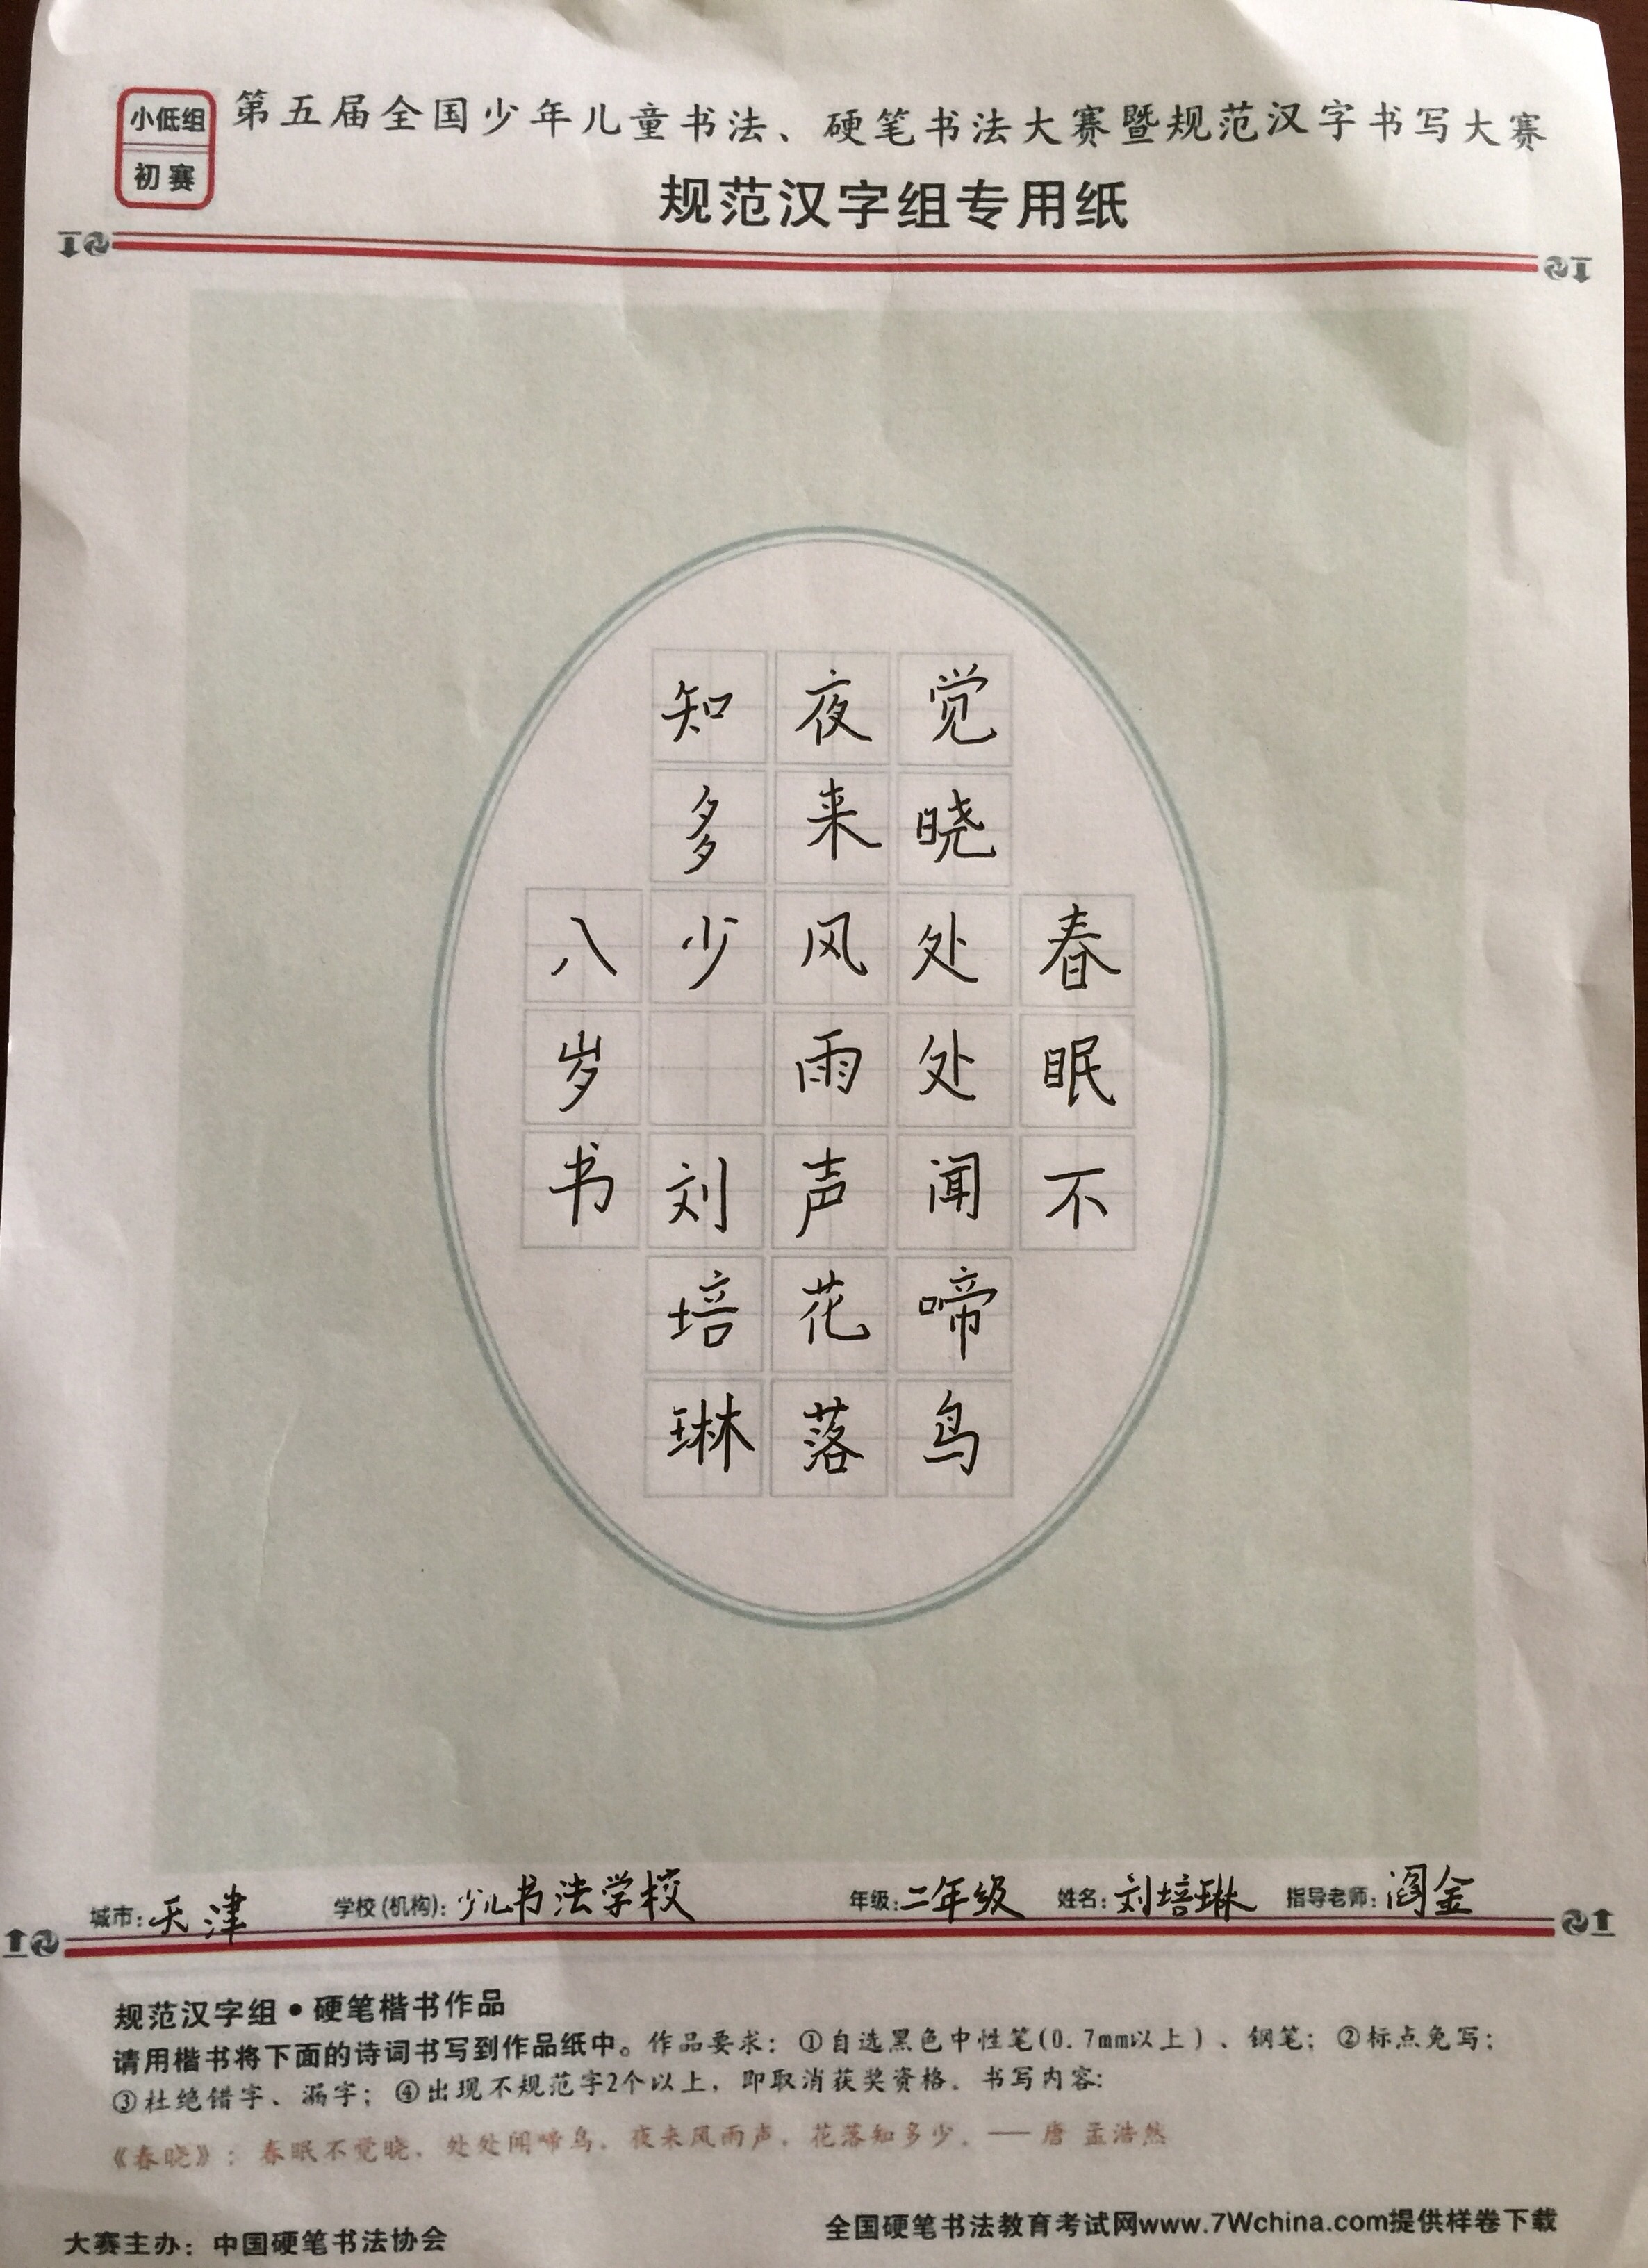 小低组
初赛
第五届全国少年儿童书法、硬笔书法大赛暨规范汉字书写大赛
规范汉字组专用纸
春眠不
觉晓处处闻啼鸟
夜来风雨声花落
知多少 刘培琳
八岁书
城市：天津 学校(机构)：少儿书法学校 年级：二年级 姓名：刘培琳 指导老师：阎金
规范汉字组•硬笔楷书作品
请用楷书将下面的诗词书写到作品纸中。作品要求：①自选黑色中性笔(0.7mm以上)、钢笔；②标点免写；
③杜绝错字、漏字；④出现不规范字2个以上，即取消获奖资格。书写内容:
《春晓》：春眠不觉晓，处处闻啼鸟。夜来风雨声，花落知多少。—— 唐 孟浩然
大赛主办：中国硬笔书法协会
全国硬笔书法教育考试网www.7Wchina.com提供样卷下载